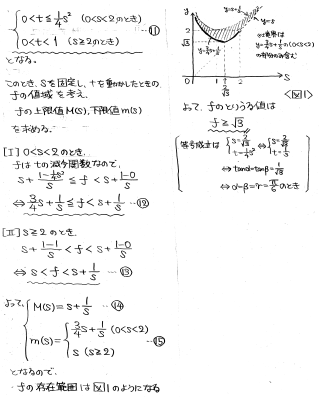 { 0<t≦1/4 s² (0<s<2のとき)
0<t<1 (s≧2のとき) …⑪
となる。
このとき、sを固定し、tを動かしたときの
fの値域を考え、
fの上限値M(s), 下限値m(s)
を求める。
[I] 0<s<2のとき、
fはtの減少関数なので、
s+(1-1/4 s²)/s ≦ f < s+(1-0)/s
⇔ 3/4 s+1/s ≦ f < s+1/s …⑫
[II] s≧2のとき、
s+(1-1)/s < f < s+(1-0)/s
⇔ s < f < s+1/s …⑬
よって、{ M(s)=s+1/s …⑭
m(s)={ 3/4 s+1/s (0<s<2)
s (s≧2) …⑮
となるので
fの存在範囲は図1のようになる
y
y=s+1/s
y=s
2
√3
0
2/√3
2
s
y=3/4 s+1/s
y=3/4 s+1/s (0<s<2)
<図1>
よって、fのとりうる値は
f≧√3
等号成立は { s=2/√3
t=1/4 s² ⇔ { s=2/√3
t=1/3
⇔ tanα=tanβ=1/√3
⇔ α=β=γ=π/6 のとき